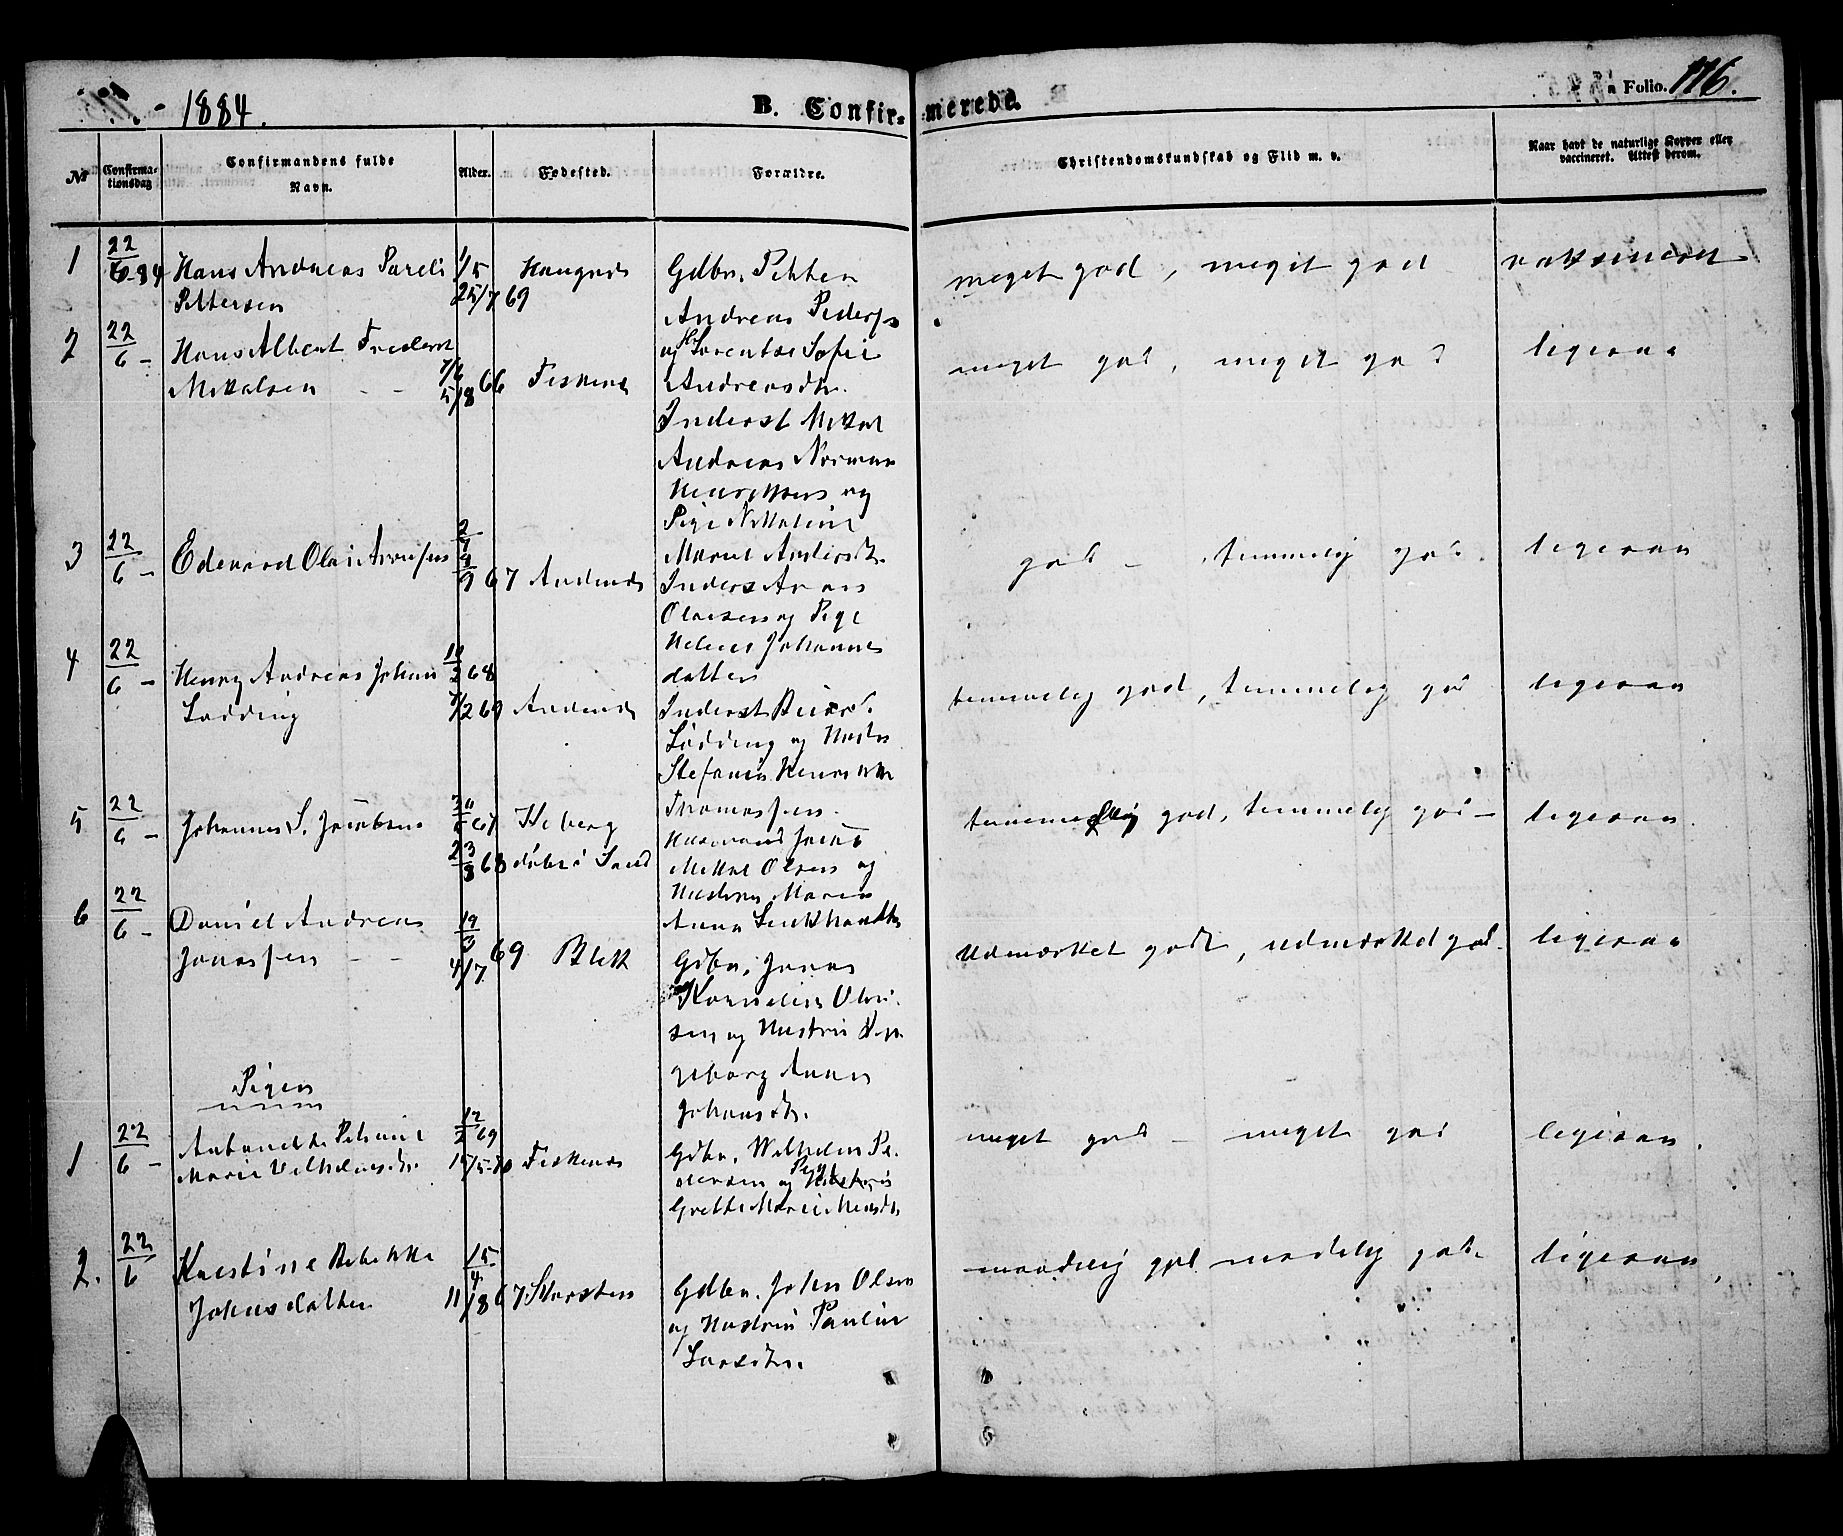 1884.
B. Confirmerede.
a Folio. 176.
No
Confirmationsdag
Confirmandens fulde Navn.
Alder.
Fødested.
Forældre.
Christendomskundskab og Flid m. v.
Naar havt de naturlige Kopper eller vaccineret. Attest derom.
1 22/6 84 Hans Andreas Pareli Pettersen 1/5 25/7 69 Haugnes
Gdbr. Petter
Andreas Peders
og Lorentse Sofie
Andreasdtr.
meget god, meget god
vaksineret
2 22/6 – Hans Albert Frederik Mikalsen 5/8 66 Fiskenes
Inderst Mikal
Andreas Norman
Henriksen og
Pige Nikoline
Marie Andersdtr.
meget god, meget god
ligesaa
3 22/6 – Edevard Olai Arnesen 67 Andenes
Inders Arn
Olaisen og Pige
Helene Johannes
datter
god – temmelig god.
ligesaa
4 22/6 – Henry Andreas Johan Lødding 68 7/2 69 Andenes
Inderst
Lødding og Hustru
Stefania
Thomassen.
temmelig god, temmelig god
ligesaa
5 22/6 – Johannes S. Jacobsen 67 23/3 68 Kleberg
Husmand Jacob
Mikal Olsen og
Hustru Maren
Anna
temmelig god, temmelig god –
ligesaa.
6 22/6 – Daniel Andreas Jonassen 19/3 4/7 69 Bleik
Gdbr. Jonas
Kornelius Olai-
sen og Hustru In-
geborg Anna
Johansdtr.
Udmærket godt, udmærket god.
ligesaa
Piger
1 22/6 – Petrine Marie Vilhelmsdtr. 12/2 69 15/5 70 Fiskenes
Gdbr. Wilhelm Pe-
dersen og Pige Hustru
Grethe Marie
meget god – meget god
ligesaa.
2. 22/6 Kirstine Rebekka Johnsdatter 15/4 11/8 67 Skarsten
Gdbr. John Olsen
og Hustru Pauline
Larsdtr.
maadelig god madelig god.
ligesaa,